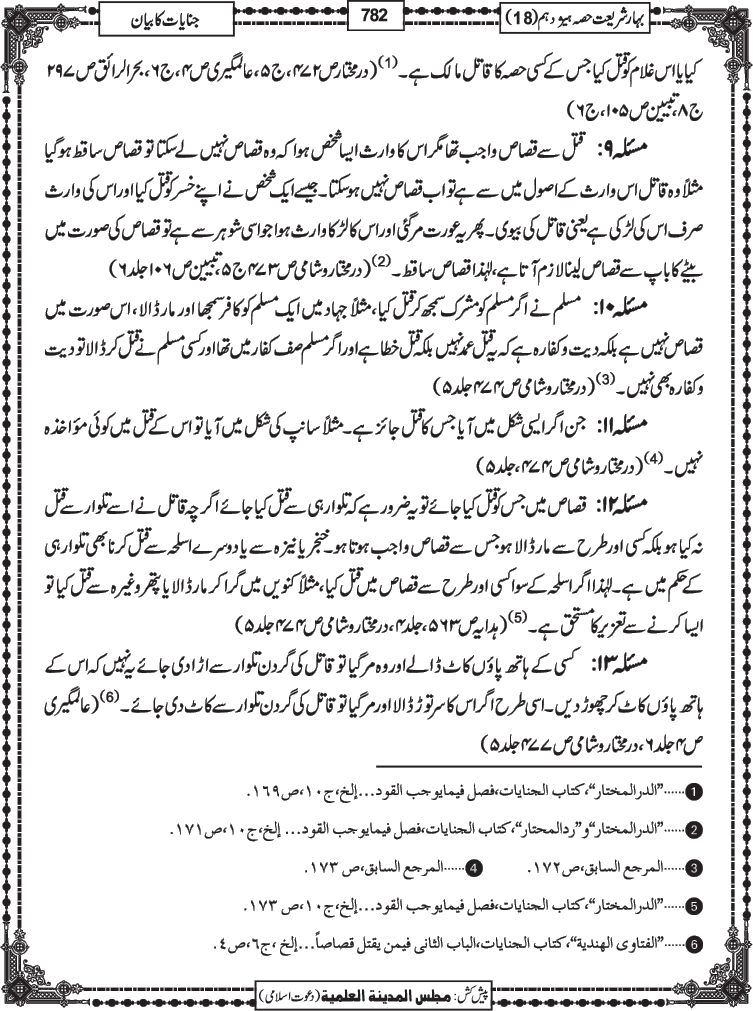 بہارِ شریعت حصہ ہیژدہم (18)
782
جنایات کا بیان
کیا یا اس غلام کو قتل کیا جس کے کسی حصہ کا قاتل مالک ہے۔ (1) (درمختار ص ۴۷۲، ج ۵، عالمگیری ص ۴، ج ۶، بحرالرائق ص ۲۹۷
ج ۸، تبیین ص ۱۰۵، ج ۶)
مسئلہ ۹: قتل سے قصاص واجب تھا مگر اس کا وارث ایسا شخص ہوا کہ وہ قصاص نہیں لے سکتا تو قصاص ساقط ہو گیا
مثلاً وہ قاتل اس وارث کے اصول میں سے ہے تو اب قصاص نہیں ہو سکتا۔ جیسے ایک شخص نے اپنے خسر کو قتل کیا اور اس کی وارث
صرف اس کی لڑکی ہے یعنی قاتل کی بیوی۔ پھر یہ عورت مر گئی اور اس کا لڑکا وارث ہوا جو اسی شوہر سے ہے تو قصاص کی صورت میں
بیٹے کا باپ سے قصاص لینا لازم آتا ہے، لہٰذا قصاص ساقط۔ (2) (درمختار و شامی ص ۴۷۳ ج ۵، تبیین ص ۱۰۶ جلد ۶)
مسئلہ ۱۰: مسلم نے اگر مسلم کو مشرک سمجھ کر قتل کیا، مثلاً جہاد میں ایک مسلم کو کافر سمجھا اور مار ڈالا، اس صورت میں
قصاص نہیں ہے بلکہ دیت و کفارہ ہے کہ یہ قتل عمد نہیں بلکہ قتل خطا ہے اور اگر مسلم صف کفار میں تھا اور کسی مسلم نے قتل کر ڈالا تو دیت
و کفارہ بھی نہیں۔ (3) (درمختار و شامی ص ۴۷۴ جلد ۵)
مسئلہ ۱۱: جن اگر ایسی شکل میں آیا جس کا قتل جائز ہے۔ مثلاً سانپ کی شکل میں آیا تو اس کے قتل میں کوئی مؤاخذہ
نہیں۔ (4) (درمختار و شامی ص ۴۷۴، جلد ۵)
مسئلہ ۱۲: قصاص میں جس کو قتل کیا جائے تو یہ ضرور ہے کہ تلوار ہی سے قتل کیا جائے اگرچہ قاتل نے اسے تلوار سے قتل
نہ کیا ہو بلکہ کسی اور طرح سے مار ڈالا ہو جس سے قصاص واجب ہوتا ہو۔ خنجر یا نیزہ سے یا دوسرے اسلحہ سے قتل کرنا بھی تلوار ہی
کے حکم میں ہے۔ لہٰذا اگر اسلحہ کے سوا کسی اور طرح سے قصاص میں قتل کیا، مثلاً کنویں میں گرا کر مار ڈالا یا پتھر وغیرہ سے قتل کیا تو
ایسا کرنے سے تعزیر کا مستحق ہے۔ (5) (ہدایہ ص ۵۶۳، جلد ۴، درمختار و شامی ص ۴۷۴ جلد ۵)
مسئلہ ۱۳: کسی کے ہاتھ پاؤں کاٹ ڈالے اور وہ مر گیا تو قاتل کی گردن تلوار سے اڑا دی جائے یہ نہیں کہ اس کے
ہاتھ پاؤں کاٹ کر چھوڑ دیں۔ اسی طرح اگر اس کا سر توڑ ڈالا اور مر گیا تو قاتل کی گردن تلوار سے کاٹ دی جائے۔ (6) (عالمگیری
ص ۴ جلد ۶، درمختار و شامی ص ۴۷۷ جلد ۵)
1 ......"الدرالمختار"، کتاب الجنایات، فصل فیمایوجب القود...إلخ، ج۱۰، ص۱۶۹.
2 ......"الدرالمختار" و "ردالمحتار"، کتاب الجنایات، فصل فیمایوجب القود... إلخ، ج۱۰، ص۱۷۱.
3 ......المرجع السابق، ص۱۷۲. 4 ......المرجع السابق، ص ۱۷۳.
5 ......"الدرالمختار"، کتاب الجنایات، فصل فیمایوجب القود...إلخ، ج۱۰، ص ۱۷۳.
6 ......"الفتاوی الھندیة"، کتاب الجنایات، الباب الثانی فیمن یقتل قصاصاً...إلخ، ج۶، ص۴.
پیش کش: مجلس المدینة العلمیة (دعوتِ اسلامی)